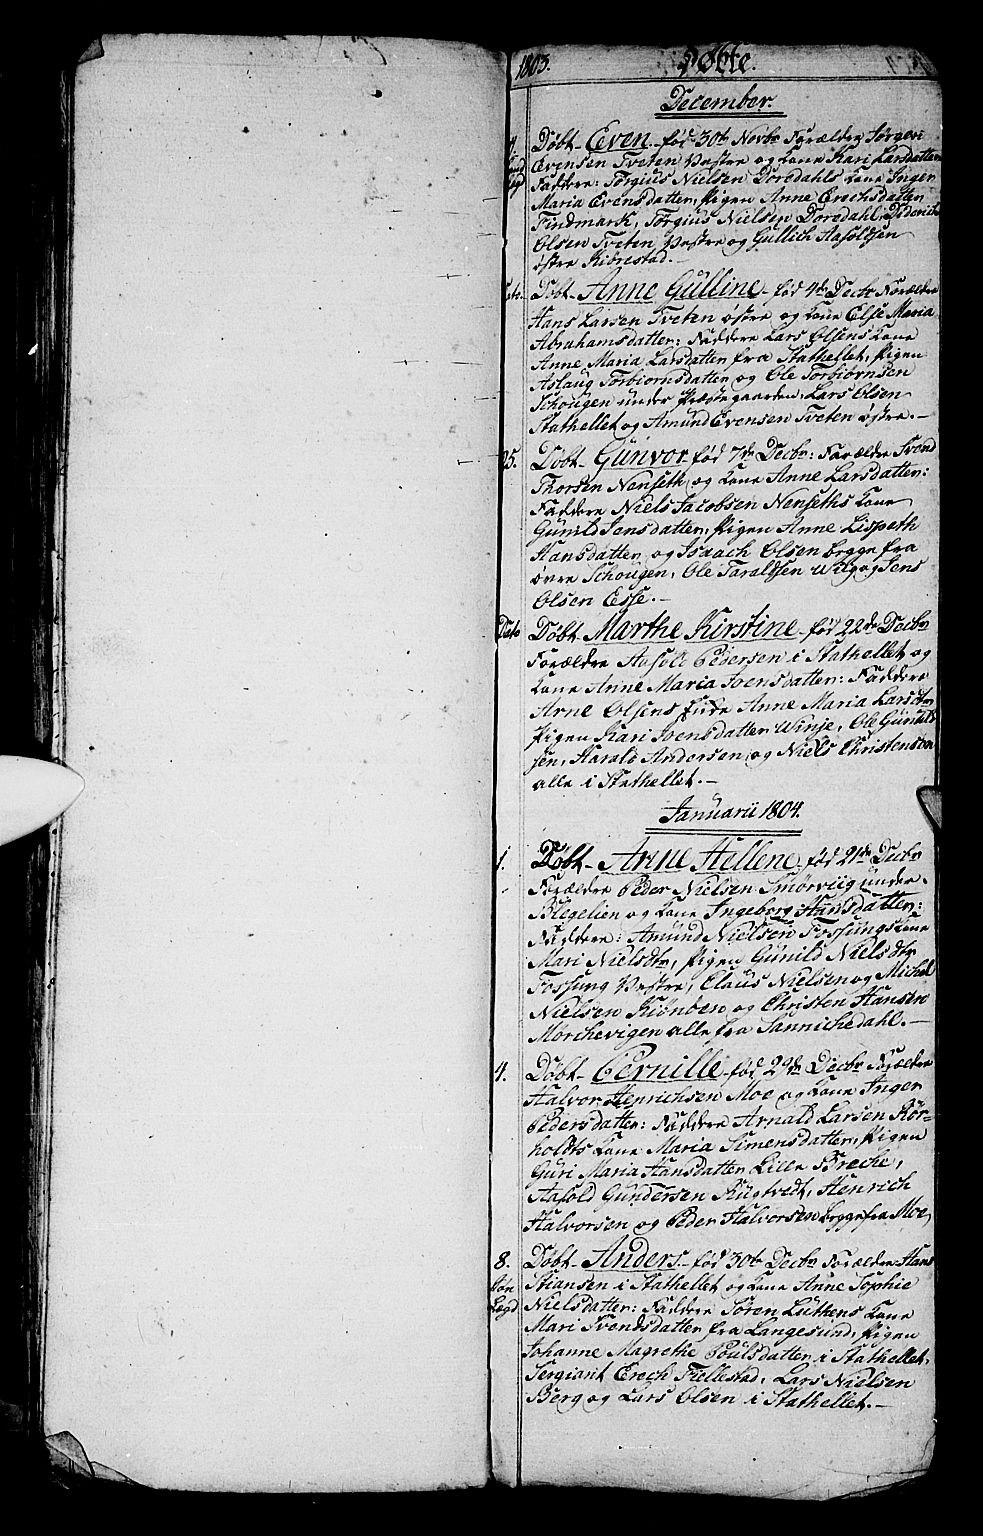 1803. Døbte.
December.
4. Døbt Even født 30te Novbr Forældre Jørgen
Evensen Tveten Vestre og Kone Kari Larsdatter
Faddere: Torgius Nielsen Doredahls Kone Inger
Maria Evensdatter, Pigen Anne Erechsdatter
Findmark, Torgius Nielsen Doredahl, Diderich
Olsen Tveten Vestre og Gullich Aasoldsen
østre Kiørestad.—
Dato. Døbt Anne Gulline født 4de Decbr Forældre
Hans Larsen Tveten østre og Kone Else Maria
Abrahamsdatter: Faddere Lars Olsens Kone
Anne Maria Larsdatter fra Stathellet, Pigen
Aslaug Torbiornsdatter og Ole Torbiørnsen
Schougen under Præstegaarden, Lars Olsen
Stathellet og Amund Evensen Tveten østre.—
25. Døbt Gunvor født 7de Decbr: Forældre Svend
Thorsen Nenseth og Kone Anne Larsdatter:
Faddere Niels Jacobsen Nenseths Kone
Gunild Jensdatter, Pigen Anne Lispeth
Hansdatter og Isaach Olsen begge fra
øvre Schougen, Ole Taraldsen Wiig og Jens
Olsen Esse.—
Dato Døbt Marthe Kirstine født 22de Decbr
Forældre Aasold Pedersen i Stathellet og
Kone Anne Maria Svensdatter: Faddere
Arne Olsens Anne Maria Larsdtr
Pigen Kari Svensdatter Winje, Ole Gunild
sen, Harald Andersen, og Niels Christensen
alle i Stathellet.—
Januarii 1804.
1. Døbt Anne Hellene født 21de Decbr
Forældre Peder Nielsen Smørviig under
Blegelien og Kone Ingeborg Hansdatter:
Faddere: Amund Nielsen Fossungs Kone
Mari Nielsdtr, Pigen Gunild Nielsdtr
Fossung Vestre, Claus Nielsen og Michel
Nielsen Kiønben og Christen Hansen
Mørchevigen alle fra Sannichedahl.—
4. Døbt Pernille født 29de Decbr Forældre
Halvor Henrichsen Moe og Kone Inger
Pedersdatter: Faddere Arnald Larsen Rør-
holdts Kone Maria Simensdatter, Pigen
Guri Maria Hansdatter Lille Breche,
Aasold Gundersen Rugtvedt, Henrich
Halvorsen og Peder Halvorsen begge fra Moe,
8. Døbt Anders født 30te Decbr Forældre Hans
Stiansen i Stathellet og Kone Anne Sophie
Lægd Nielsdatter: Faddere Søren Luthens Kone
Mari Svendsdatter fra Langesund, Pigen
Johanne Magrethe Poulsdatter i Stathellet,
Sergiant Erech Fiellestad, Lars Nielsen
Berg og Lars Olsen i Stathellet.—